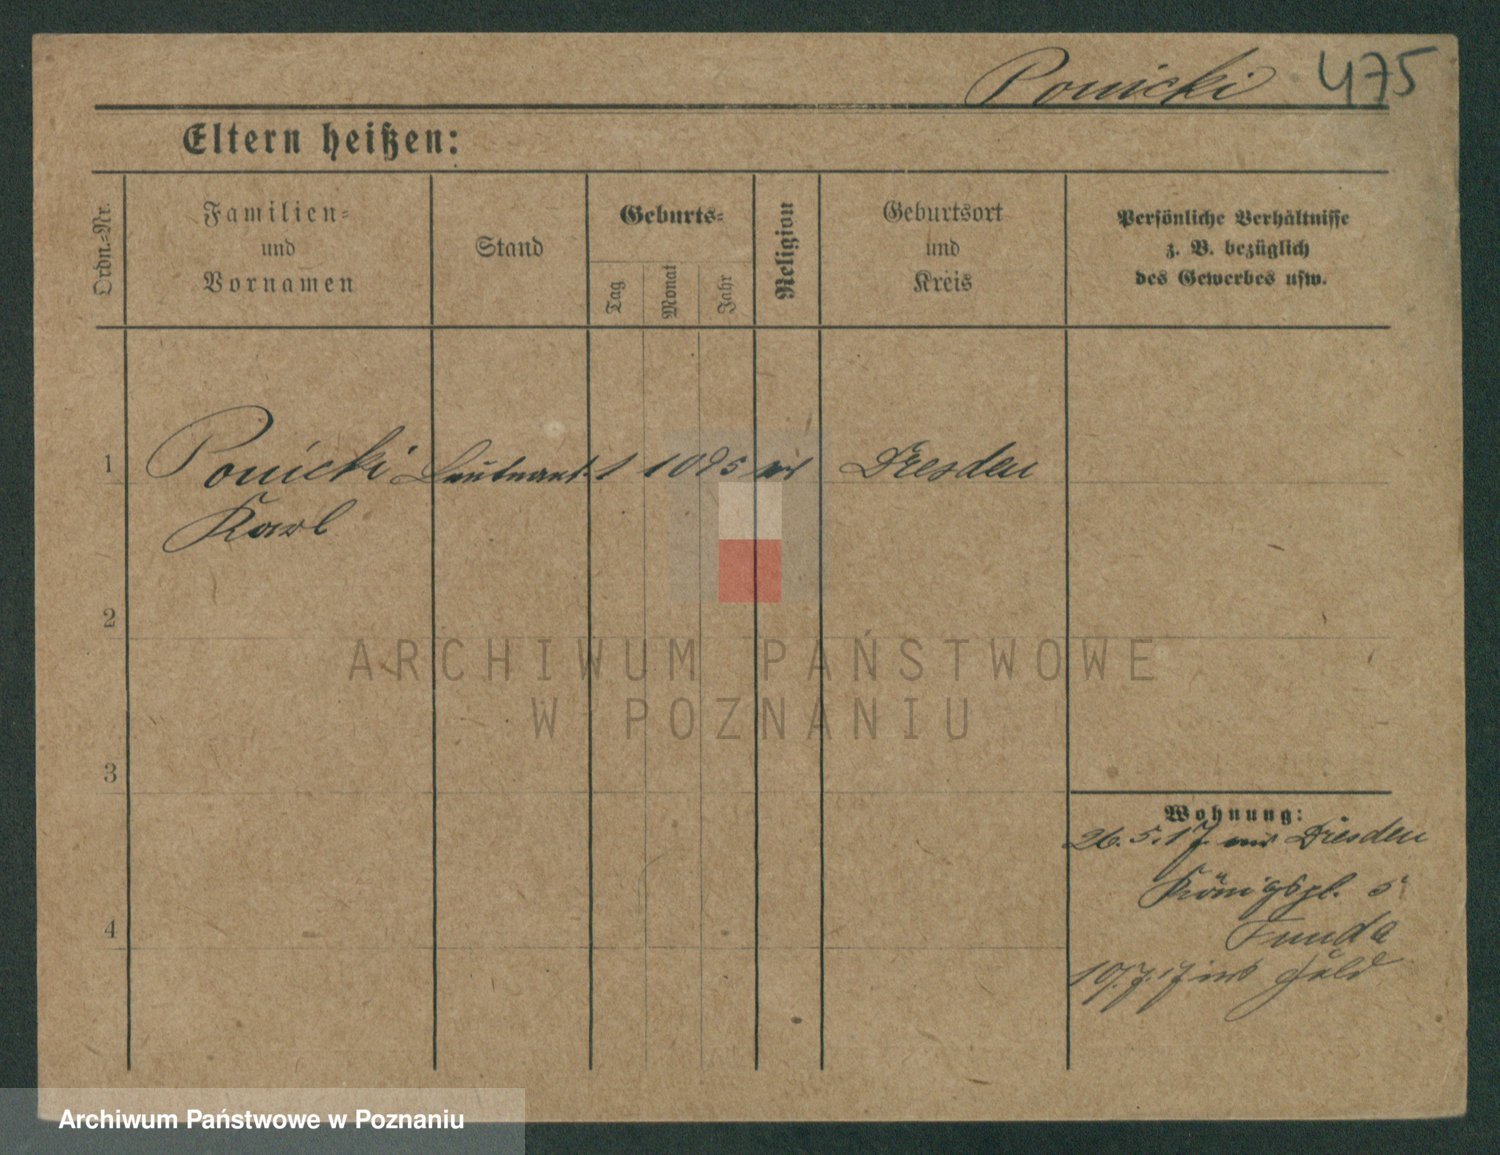 Ponicki 475
Eltern heißen:
Ordn.=Nr.
Familien=
und
Vornamen
Stand
Geburts=
Tag
Monat
Jahr
Religion
Geburtsort
und
Kreis
Persönliche Verhältnisse
z. B. bezüglich
des Gewerbes usw.
1 Ponicki Leutnant 1 10 95 Dresden
Karl
2
3
4
Wohnung:
26.5.17 aus Dresden
Königspl. 5
Funda
10/7.17 ins Feld
ARCHIWUM PAŃSTWOWE
W POZNANIU
Archiwum Państwowe w Poznaniu